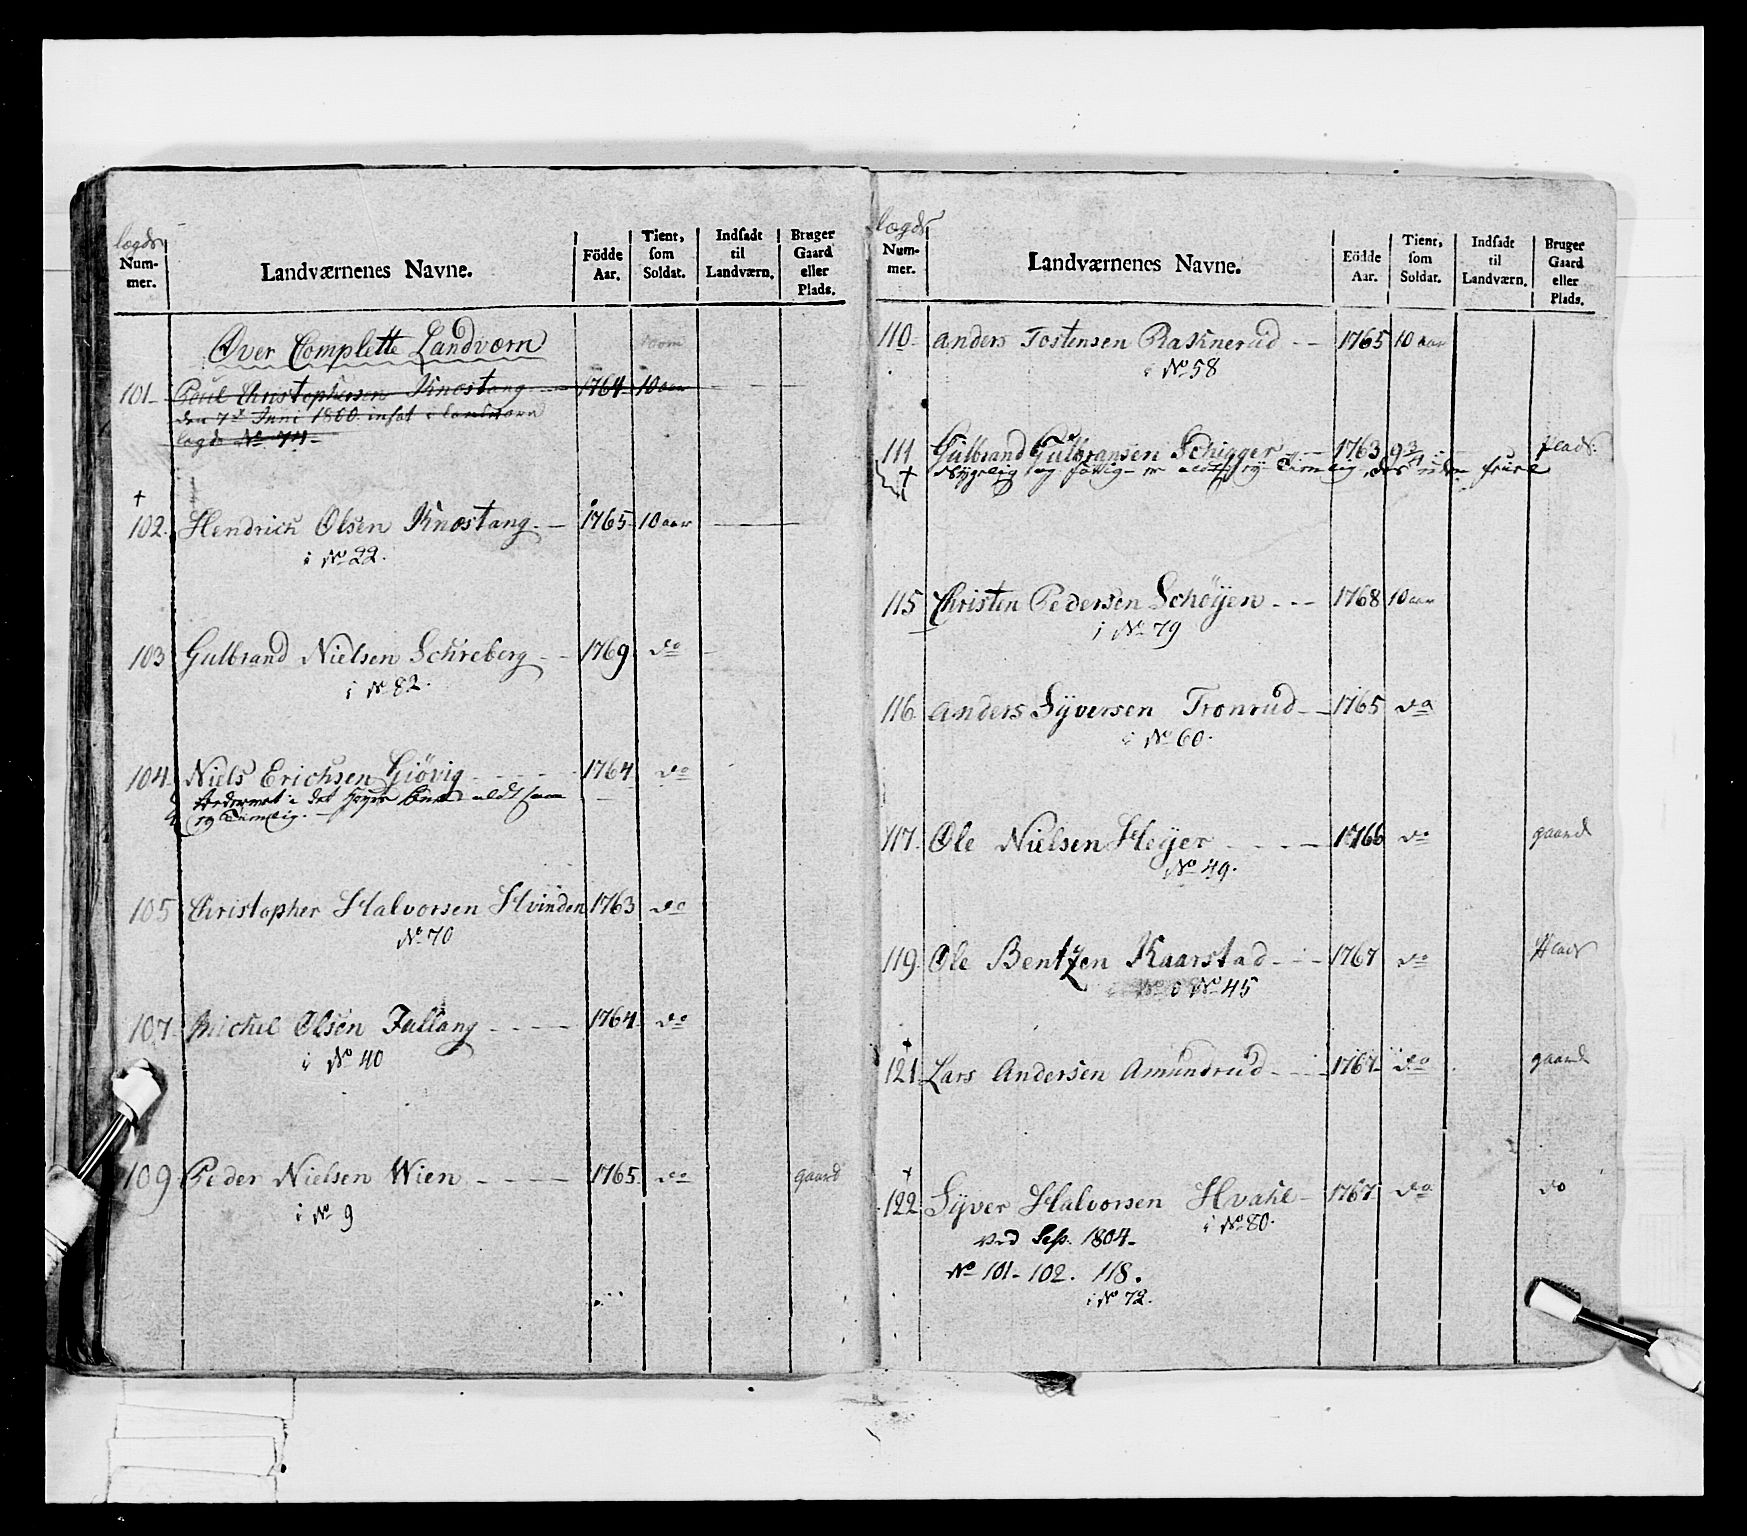 lægds
Num-
mer.
Landværnenes Navne.
Födde
Aar.
Tient,
som
Soldat.
Indsadt
til
Landværn.
Bruger
Gaard
eller
Plads.
Over Complette Landværn
101 Poul Christophersen Knostang 1764 10 aar
den 7de Juni 1800 insat i landværn
lægd No 74
†
102. Hendrich Olsen Knostang 1765 10 aar
i No 22.
103 Gulbrand Nielsen Schreberg 1769 do
i No 82.
104. Niels Erichsen Giövig 1764 do
i det
105 Christopher Halvorsen Hvinden 1763 do
No 70
107. Michel Olsen Fallang 1764 do
i No 40
109 Peder Nielsen Wien 1765 do gaard
i No 9
lægds
Num-
mer.
Landværnenes Navne.
Födde
Aar.
Tient,
som
Soldat.
Indsadt
til
Landværn.
Bruger
Gaard
eller
Plads.
110. Anders Tostensen Raknerud 1765 10 aar
i No 58
111 Gulbrand Gulbransen Schigger 1763 9 3/4 plads.
† og
115 Christen Pedersen Schöyen 1768 10 aar
i No 79
116 Anders Syversen Tronrud 1765 do
i No 60.
117. Ole Nielsen Heyer 1766 do gaard
No 49.
119. Ole Bentzen Kaarstad 1767 do Plads
i No 45
†
121. Lars Andersen Amundrud 1767 do gaard
†
122. Syver Halvorsen Hvahl 1767 do do
i No 80.
ved Sess. 1804.
No 101 - 102. 118.
i No 72.